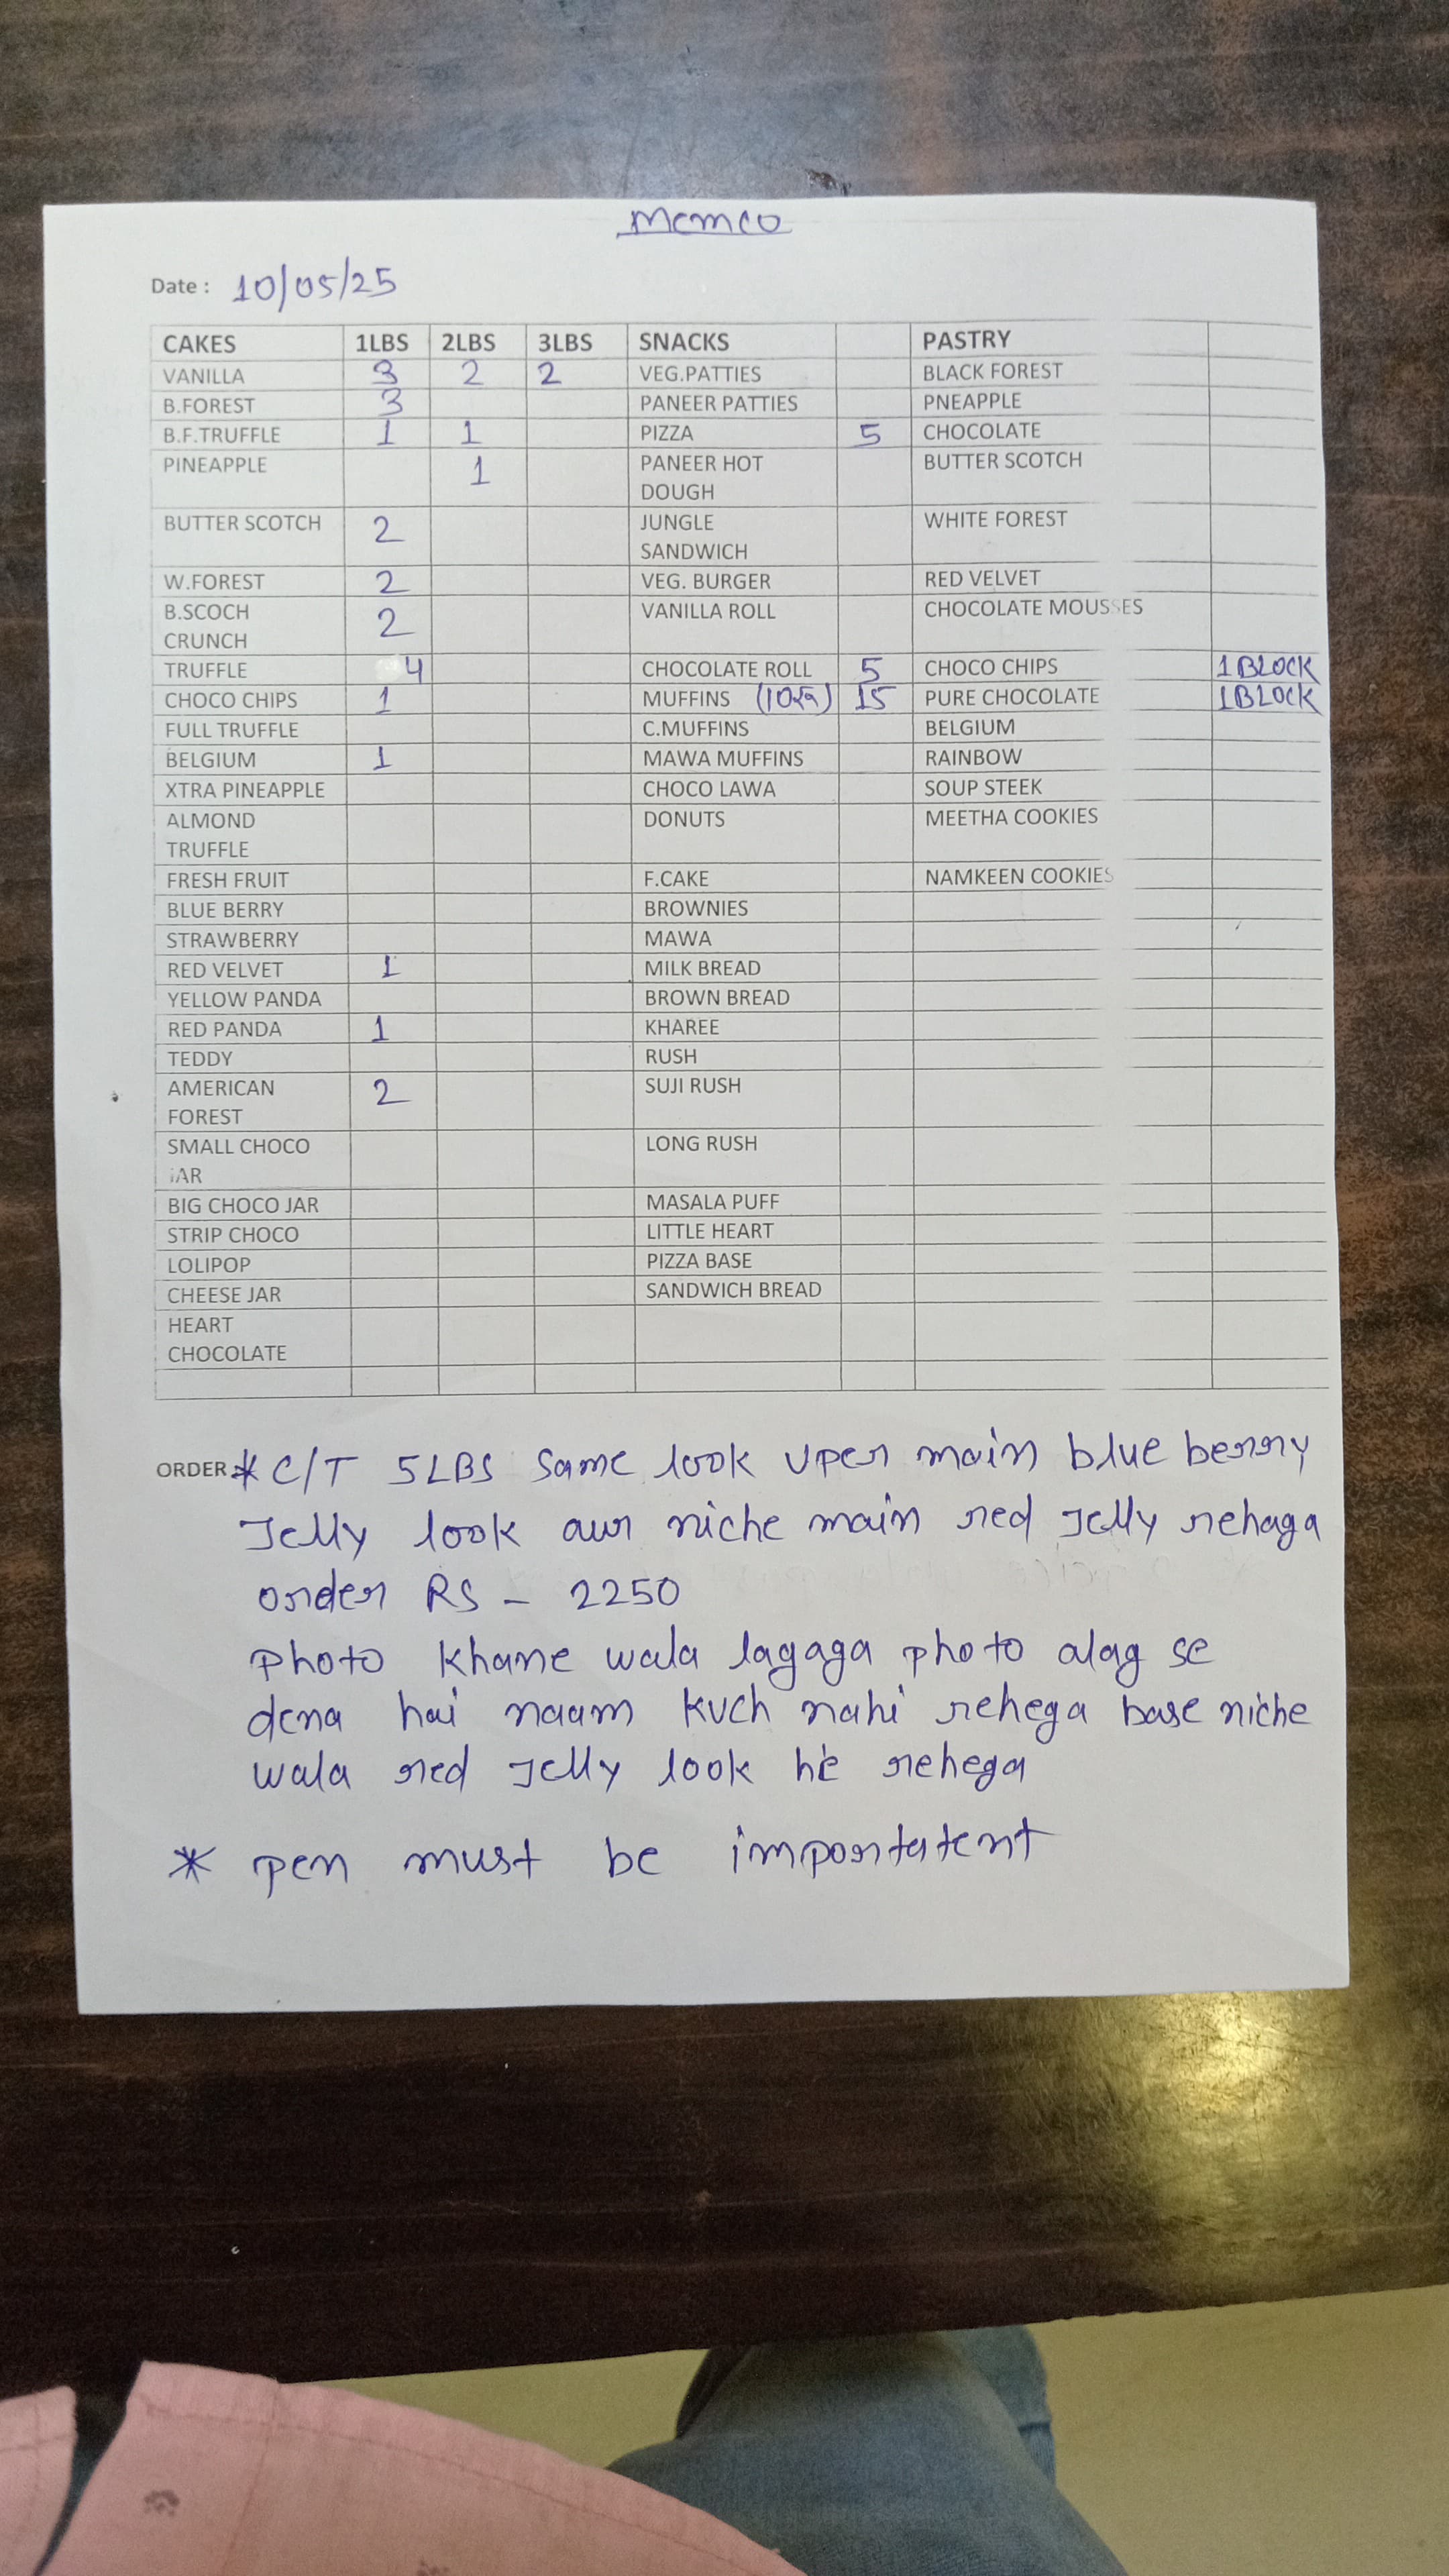 Memco
Date : 10/05/25
CAKES 1LBS 2LBS 3LBS SNACKS PASTRY
VANILLA 3 2 2 VEG.PATTIES BLACK FOREST
B.FOREST 3 PANEER PATTIES PNEAPPLE
B.F.TRUFFLE 1 1 PIZZA 5 CHOCOLATE
PINEAPPLE 1 PANEER HOT BUTTER SCOTCH
DOUGH
BUTTER SCOTCH 2 JUNGLE WHITE FOREST
SANDWICH
W.FOREST 2 VEG. BURGER RED VELVET
B.SCOCH 2 VANILLA ROLL CHOCOLATE MOUSSES
CRUNCH
TRUFFLE 4 CHOCOLATE ROLL 5 CHOCO CHIPS 1 BLOCK
CHOCO CHIPS 1 MUFFINS 15 PURE CHOCOLATE 1 BLOCK
FULL TRUFFLE C.MUFFINS BELGIUM
BELGIUM 1 MAWA MUFFINS RAINBOW
XTRA PINEAPPLE CHOCO LAWA SOUP STEEK
ALMOND DONUTS MEETHA COOKIES
TRUFFLE
FRESH FRUIT F.CAKE NAMKEEN COOKIES
BLUE BERRY BROWNIES
STRAWBERRY MAWA
RED VELVET 1 MILK BREAD
YELLOW PANDA BROWN BREAD
RED PANDA 1 KHAREE
TEDDY RUSH
AMERICAN 2 SUJI RUSH
FOREST
SMALL CHOCO LONG RUSH
JAR
BIG CHOCO JAR MASALA PUFF
STRIP CHOCO LITTLE HEART
LOLIPOP PIZZA BASE
CHEESE JAR SANDWICH BREAD
HEART
CHOCOLATE
ORDER * C/T 5LBS Same look Uper main blue berry
Jelly look aur niche main red Jelly rehaga
order RS - 2250
photo khane wala lagaga photo alag se
dena hai naam kuch nahi rehega base niche
wala red Jelly look he rehega
* pen must be importatent